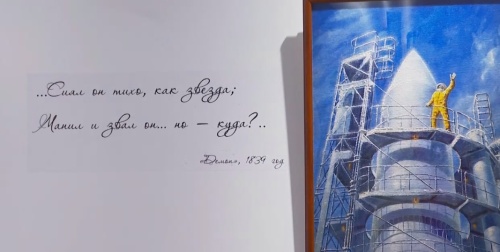 ...Сиял он тихо, как звезда;
Манил и звал он... но — куда?..
«Демон», 1839 год